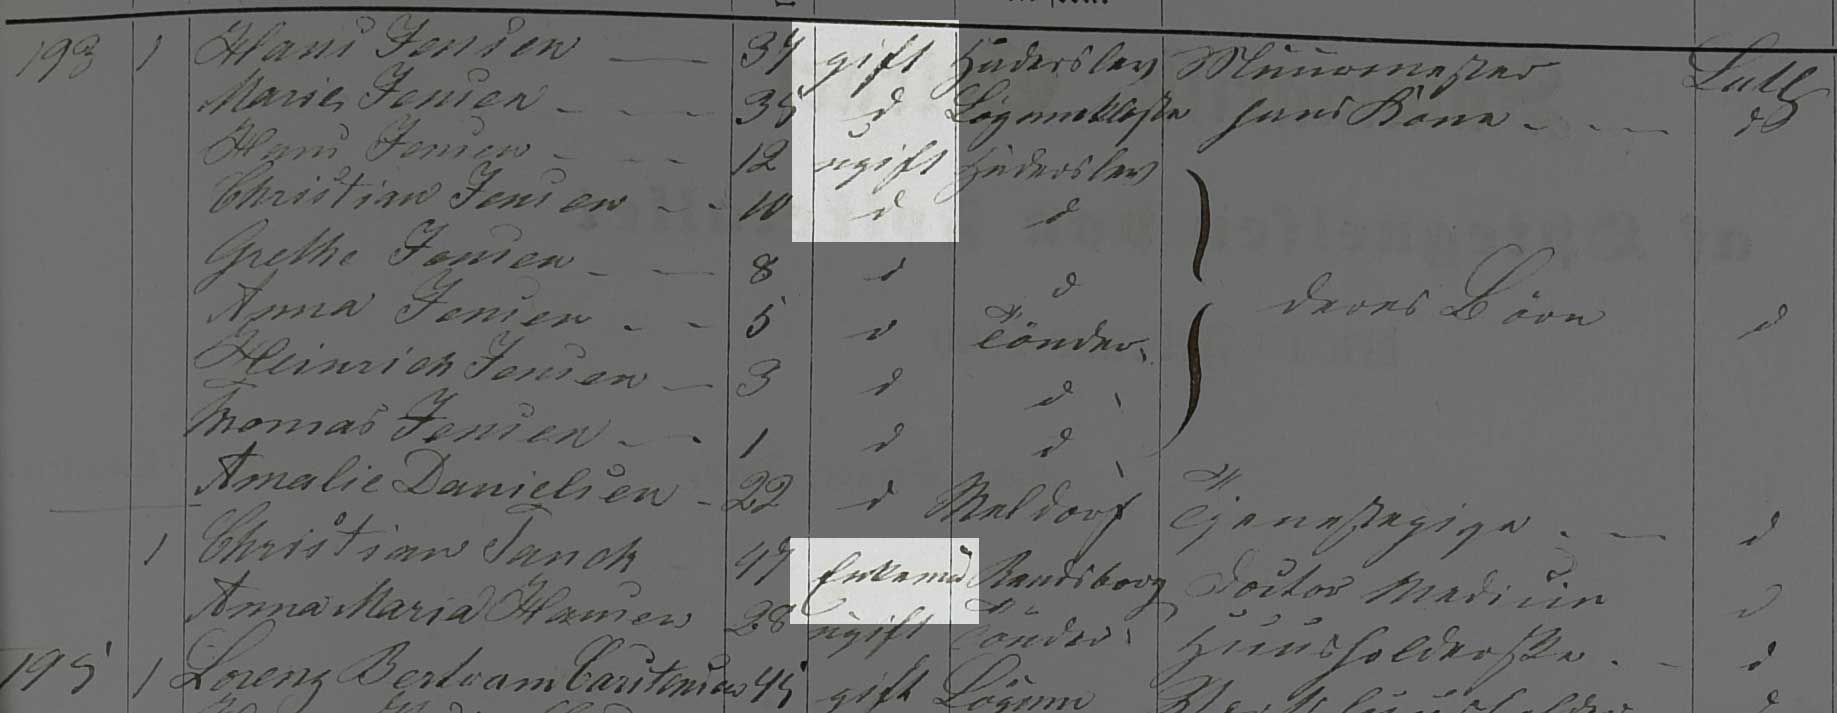 193 1 Hans Jensen 37 gift Haderslev Muurmester Luth
Marie Jensen 35 d Lögumkloster hans Kone d
Hans Jensen 12 ugift Haderslev
Christian Jensen 10 d d
Grethe Jensen 8 d d
deres Börn d
Anna Jensen 5 d Tönder
Heinrich Jensen 3 d d
Thomas Jensen 1 d d
Amalie Danielsen 22 d Meldorf Tjenestepige d
1 Christian Tanck 47 Enkemd Rendsborg Doctor Medicin d
Anna Maria Hansen 28 ugift Tönder Huusholderske d
195 1 Lorenz Bertram Carstensen 45 gift Lögum